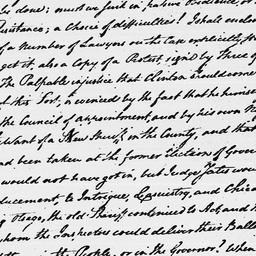 is done; must we find in passive Obedience, or
Resistance; a choice of difficulties! I shall endea
of a Number of Lawyers on the Case explicitly, th
get it, also a Copy of a Protest, signed by three of
The Palpable injustice that Clinton should come
of this sort, is evinced by the fact that he hims
the Council of appointment, and by his own
want of a New Sheriff in the County, and that
had been taken at the former election of Gover
would not have got in, but Judge Yates wou
ducement, to Intrigue, Sophistry, and Chica
Otsego, the old Sheriff continued to Act, and
whom the Inspectors could deliver their Ball
the People, or in the Governor? When